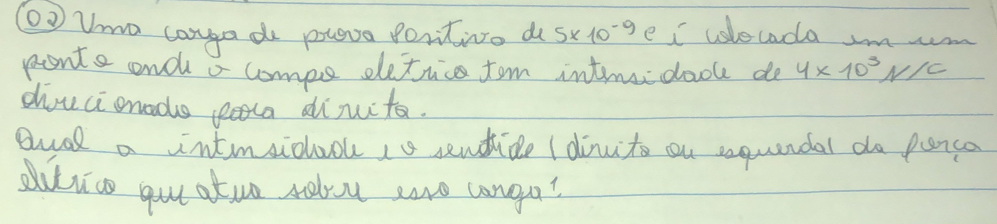 02) Uma carga de prova positiva de 5x10⁻⁹ c é colocada em um
ponto onde o campo elétrico tem intensidade de 4x10³ N/C
direcionado para direita.
Qual a intensidade e o sentido (direita ou esquerda) da força
elétrica que atua sobre essa carga?